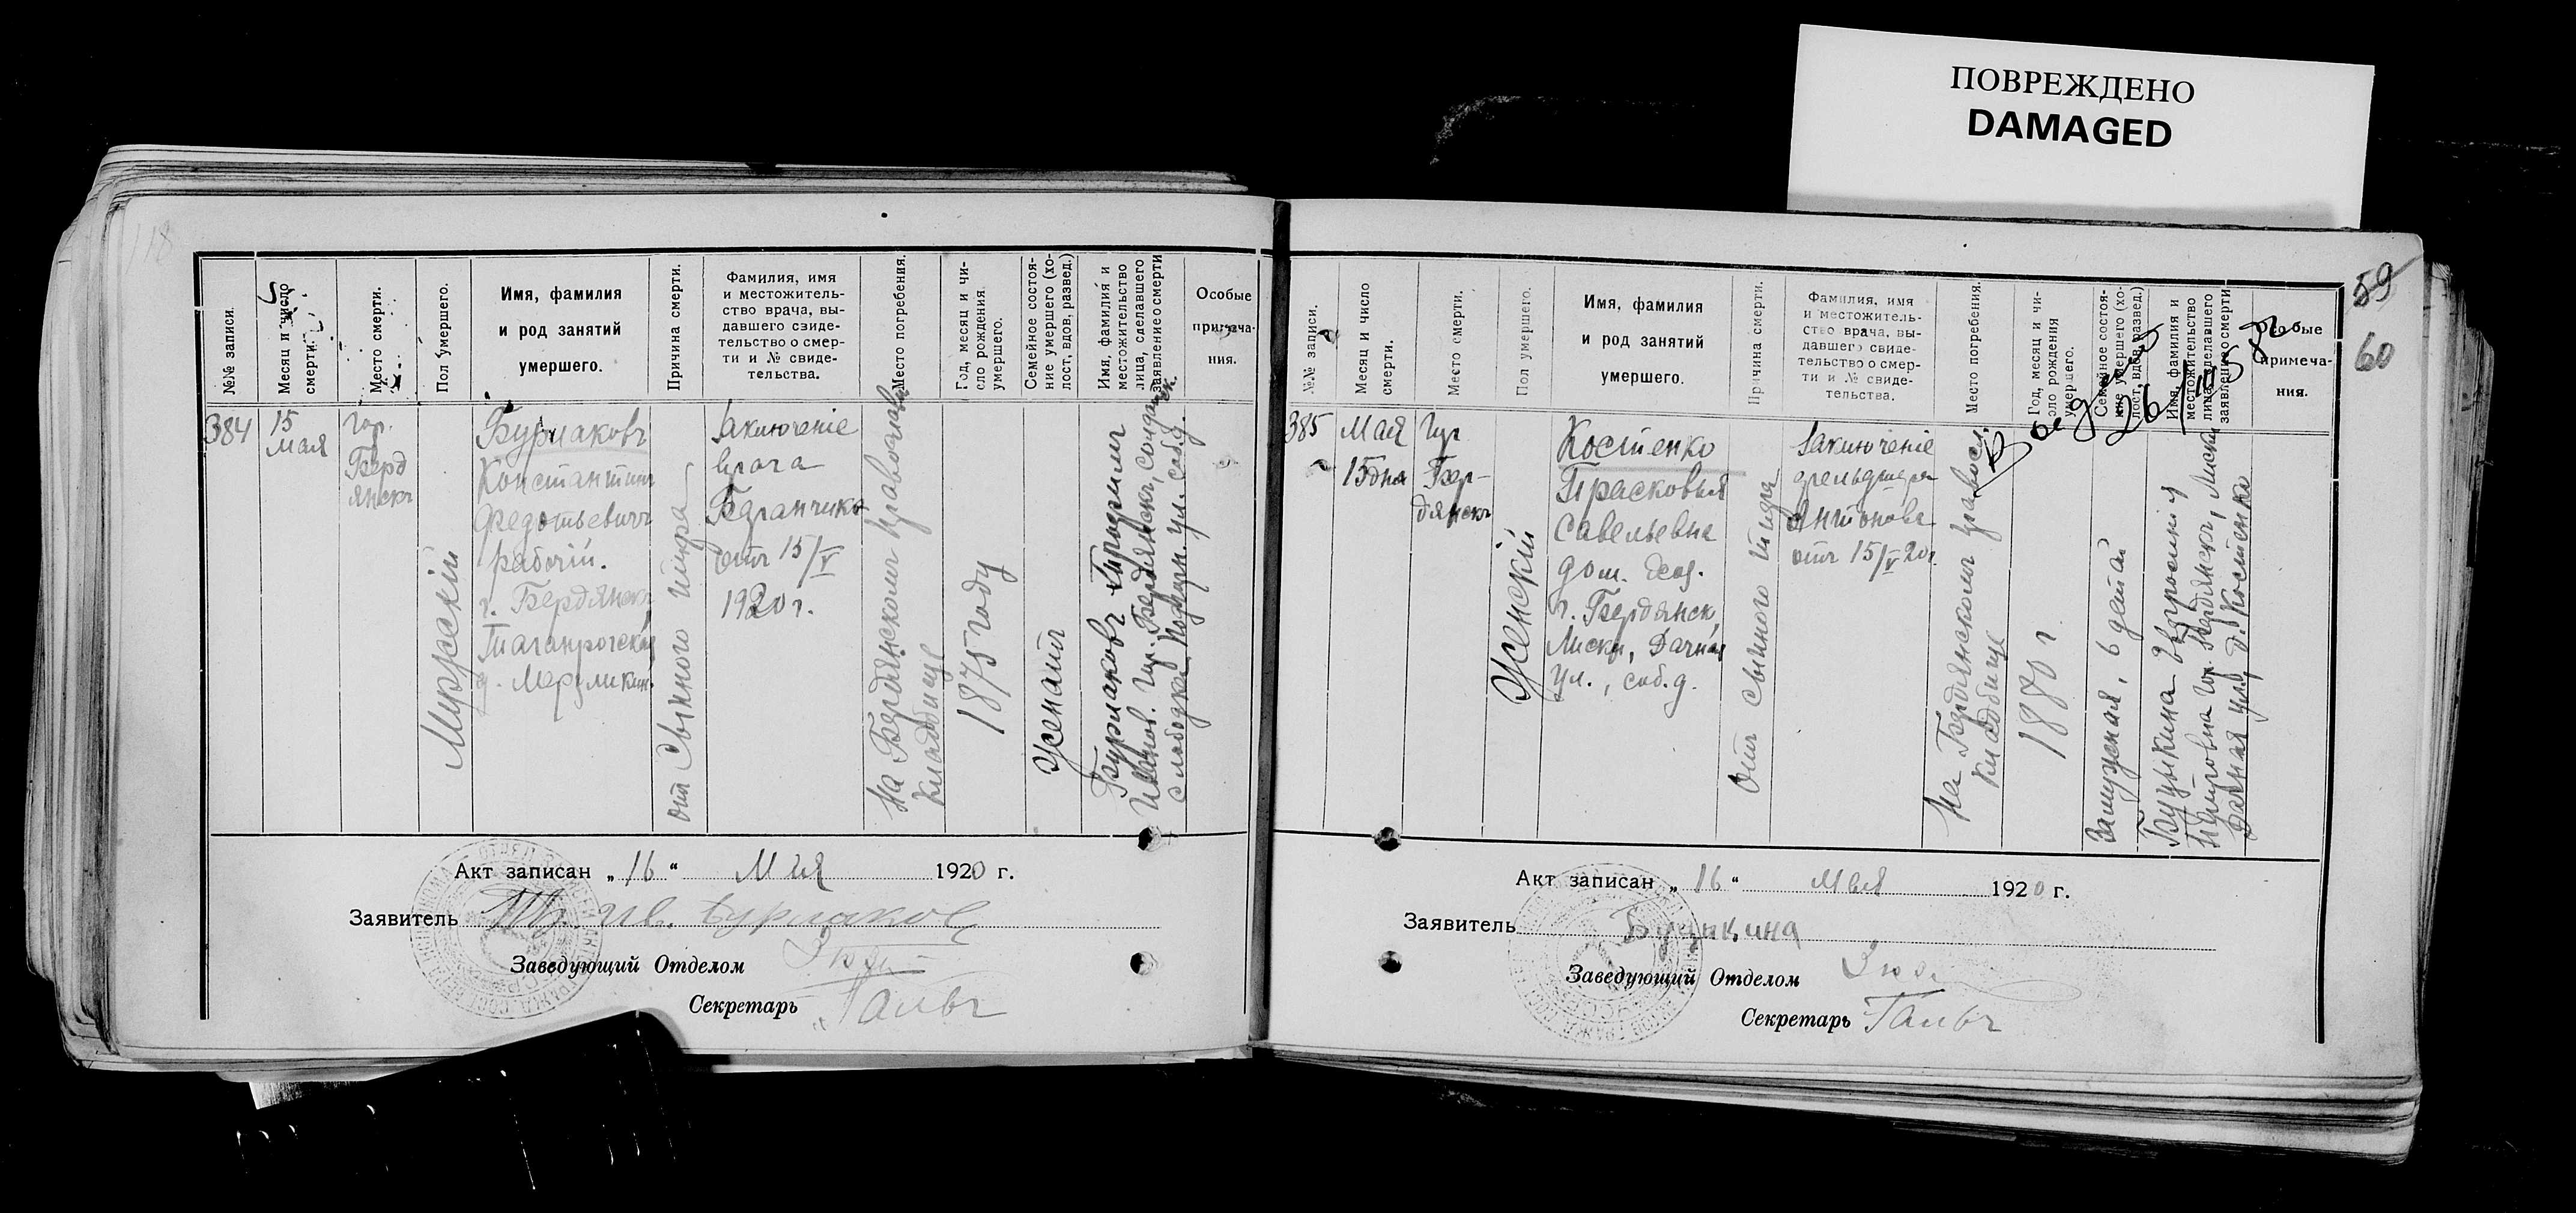 ПОВРЕЖДЕНО
DAMAGED
№№ записи.
Месяц и число
смерти.
Место смерти.
Пол умершего.
Имя, фамилия
и род занятий
умершего.
Причина смерти.
Фамилия, имя
и местожитель-
ство врача, вы-
давшего свиде-
тельство о смер-
ти и № свиде-
тельства.
Место погребения.
Год, месяц и чи-
сло рождения
умершего.
Семейное состоя-
ние умершего (хо-
лост, вдов, развед.)
Имя, фамилия и
местожительство
лица, сделавшего
заявление о смерти
Особые
примеча-
ния.
384
15
мая
гор.
Берд
янскъ
Мужской
Бурлаковъ
Константинъ
Федотьевичъ
рабочій.
г. Бердянскъ
Таганрогская
от Сыпного тифа
Заключеніе
врача
отъ 15/V
1920 г.
на Бердянскомъ православн.
кладбище
1875 году
Женатъ
Бурлаковъ Трофимъ
Иванов. гор. Бердянскъ, солдатск.
слободка ул. соб д.
Акт записан „16“ Мая 1920 г.
Заявитель Тр. Ив. Бурлаковъ
Заведующий Отделом
Секретарь Галъ
59
60
№№ записи.
Месяц и число
смерти.
Место смерти.
Пол умершего.
Имя, фамилия
и род занятий
умершего.
Причина смерти.
Фамилия, имя
и местожитель-
ство врача, вы-
давшего свиде-
тельство о смер-
ти и № свиде-
тельства.
Место погребения.
Год, месяц и чи-
сло рождения
умершего.
Семейное состоя-
ние умершего (хо-
лост, вдов, развед.)
Имя, фамилия и
местожительство
лица, сделавшего
заявление о смерти
Особые
примеча-
ния.
385
Мая
15 дня
гор
Бер-
дянскъ
Женскій
Костенко
Прасковья
Савельевна
дом. хоз.
г. Бердянск,
Лиски, Дачная
ул., соб. д.
отъ сыпного тифа
Заключеніе
фельдшера
Антонова
отъ 15/V 20 г.
на Бердянскомъ правосл.
кладбище
1880 г
Замужняя, 6 детей
Буцыкина
Петровна гор. Бердянскъ, Лиски
Дачная ул, д. Костенко
Акт записан „16“ Мая 1920 г.
Заявитель Буцыкина
Заведующий Отделом
Секретарь Галъ